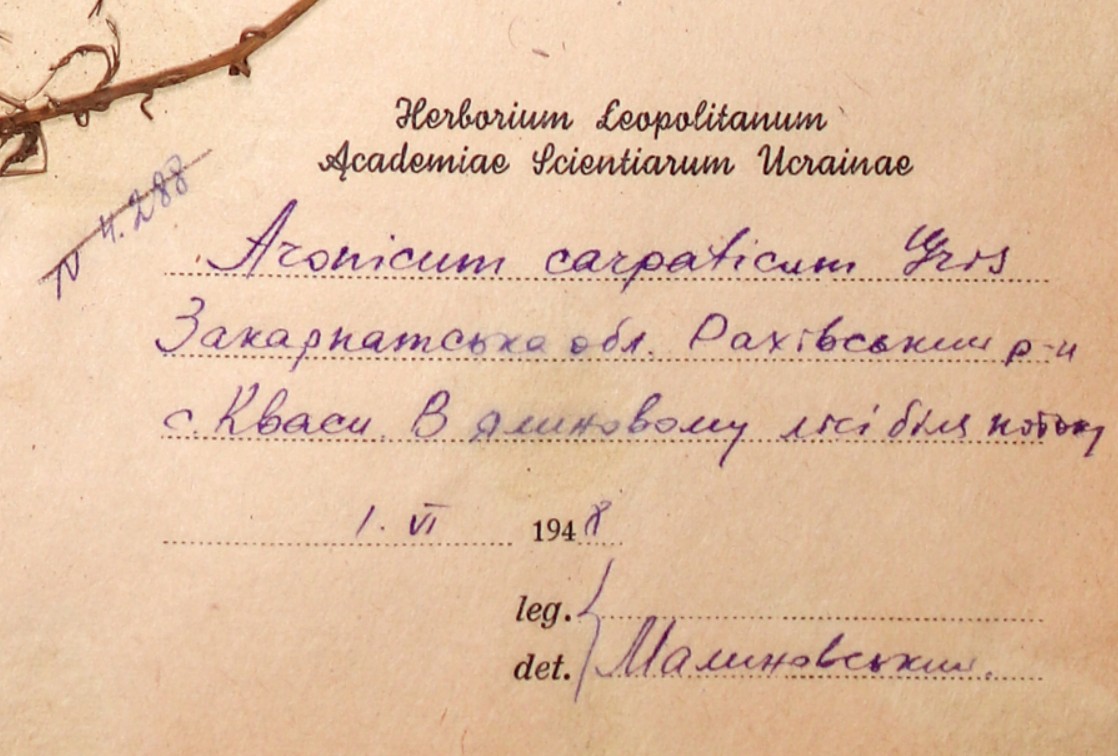 Herborium Leopolitanum
Academiae Scientiarum Ucrainae
IV 4.288
Aronicum carpaticum Gris
Закарпатська обл. Рахівський р-н
с. Кваси. В ялиновому лісі біля потоку
1. VI 1948
leg.
det. Малиновський.